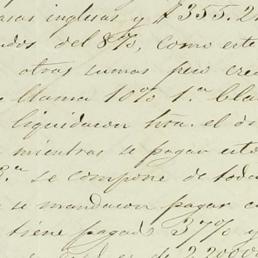 casas inglesas y $355.2
dos del 8%, como este
otras sumas pero cre
llama 10% 1.ª cla
liquidacion hra. el
mientras se pagan
3.ª se compone de toda
se mandaron pagar
tiene pagado 37% y